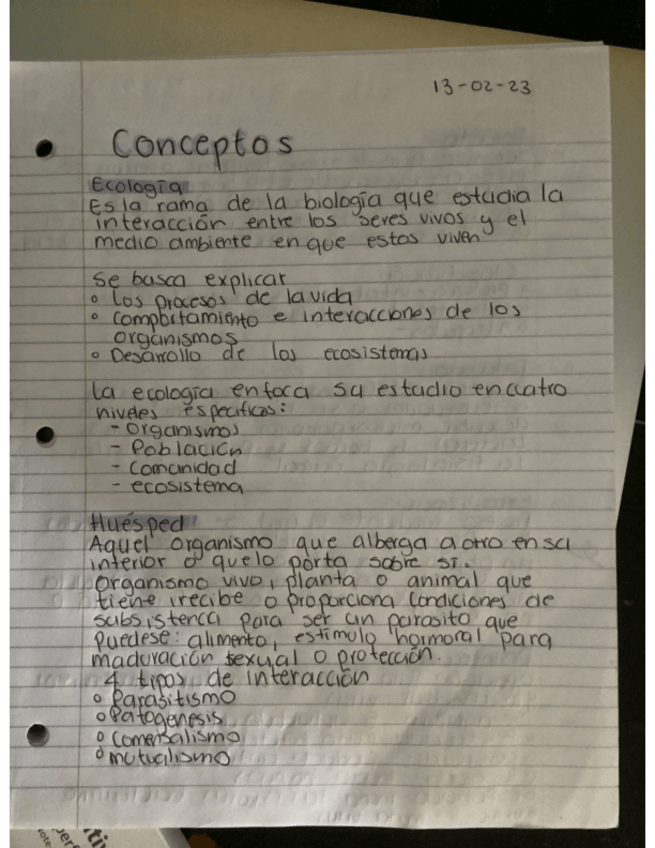 13-02-23
Conceptos
Ecología
Es la rama de la biología que estudia la
interacción entre los seres vivos y el
medio ambiente en que estos viven
Se busca explicar
• Los procesos de la vida
• comportamiento e interacciones de los
organismos
• Desarrollo de los ecosistemas
La ecología enfoca su estudio en cuatro
niveles especificos:
- Organismos
- Población
- Comunidad
- ecosistema
Huésped
Aquel organismo que alberga a otro en su
interior o que lo porta sobre sí.
Organismo vivo, planta o animal que
tiene, recibe o proporciona condiciones de
subsistenca para ser un parasito que
puedese: alimento, estímulo hormoral para
maduración sexual o protección.
4 tipos de interacción
• Parasitismo
• Patogenesis
• comensalismo
• mutualismo